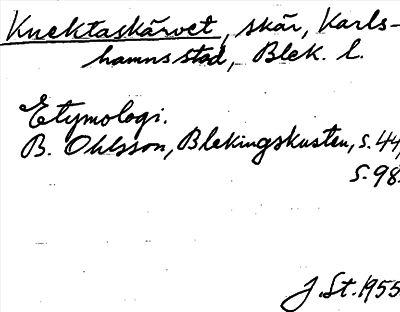 Knektaskärvet, skär, Karls-
hamns stad, Blek. l.
Etymologi.
B. Ohlsson, Blekingskusten, s. 44,
s. 98.
J. St. 1955